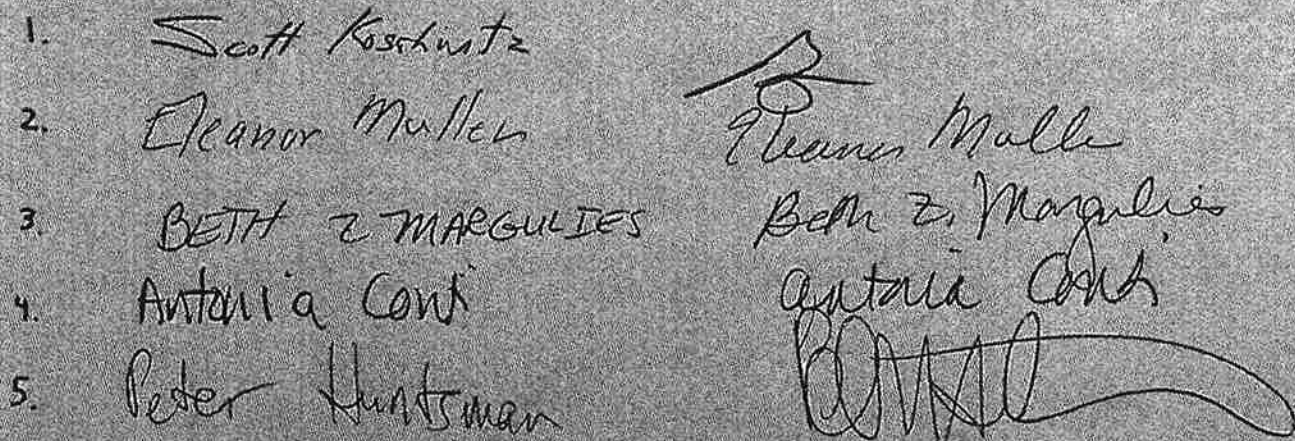 1. Scott Koschwitz
2. Eleanor Mullen Eleanor Mulle
3. BETH Z MARGULIES Beth Z. Margulies
4. Antonia Conti Antonia Conti
5. Peter Huntsman